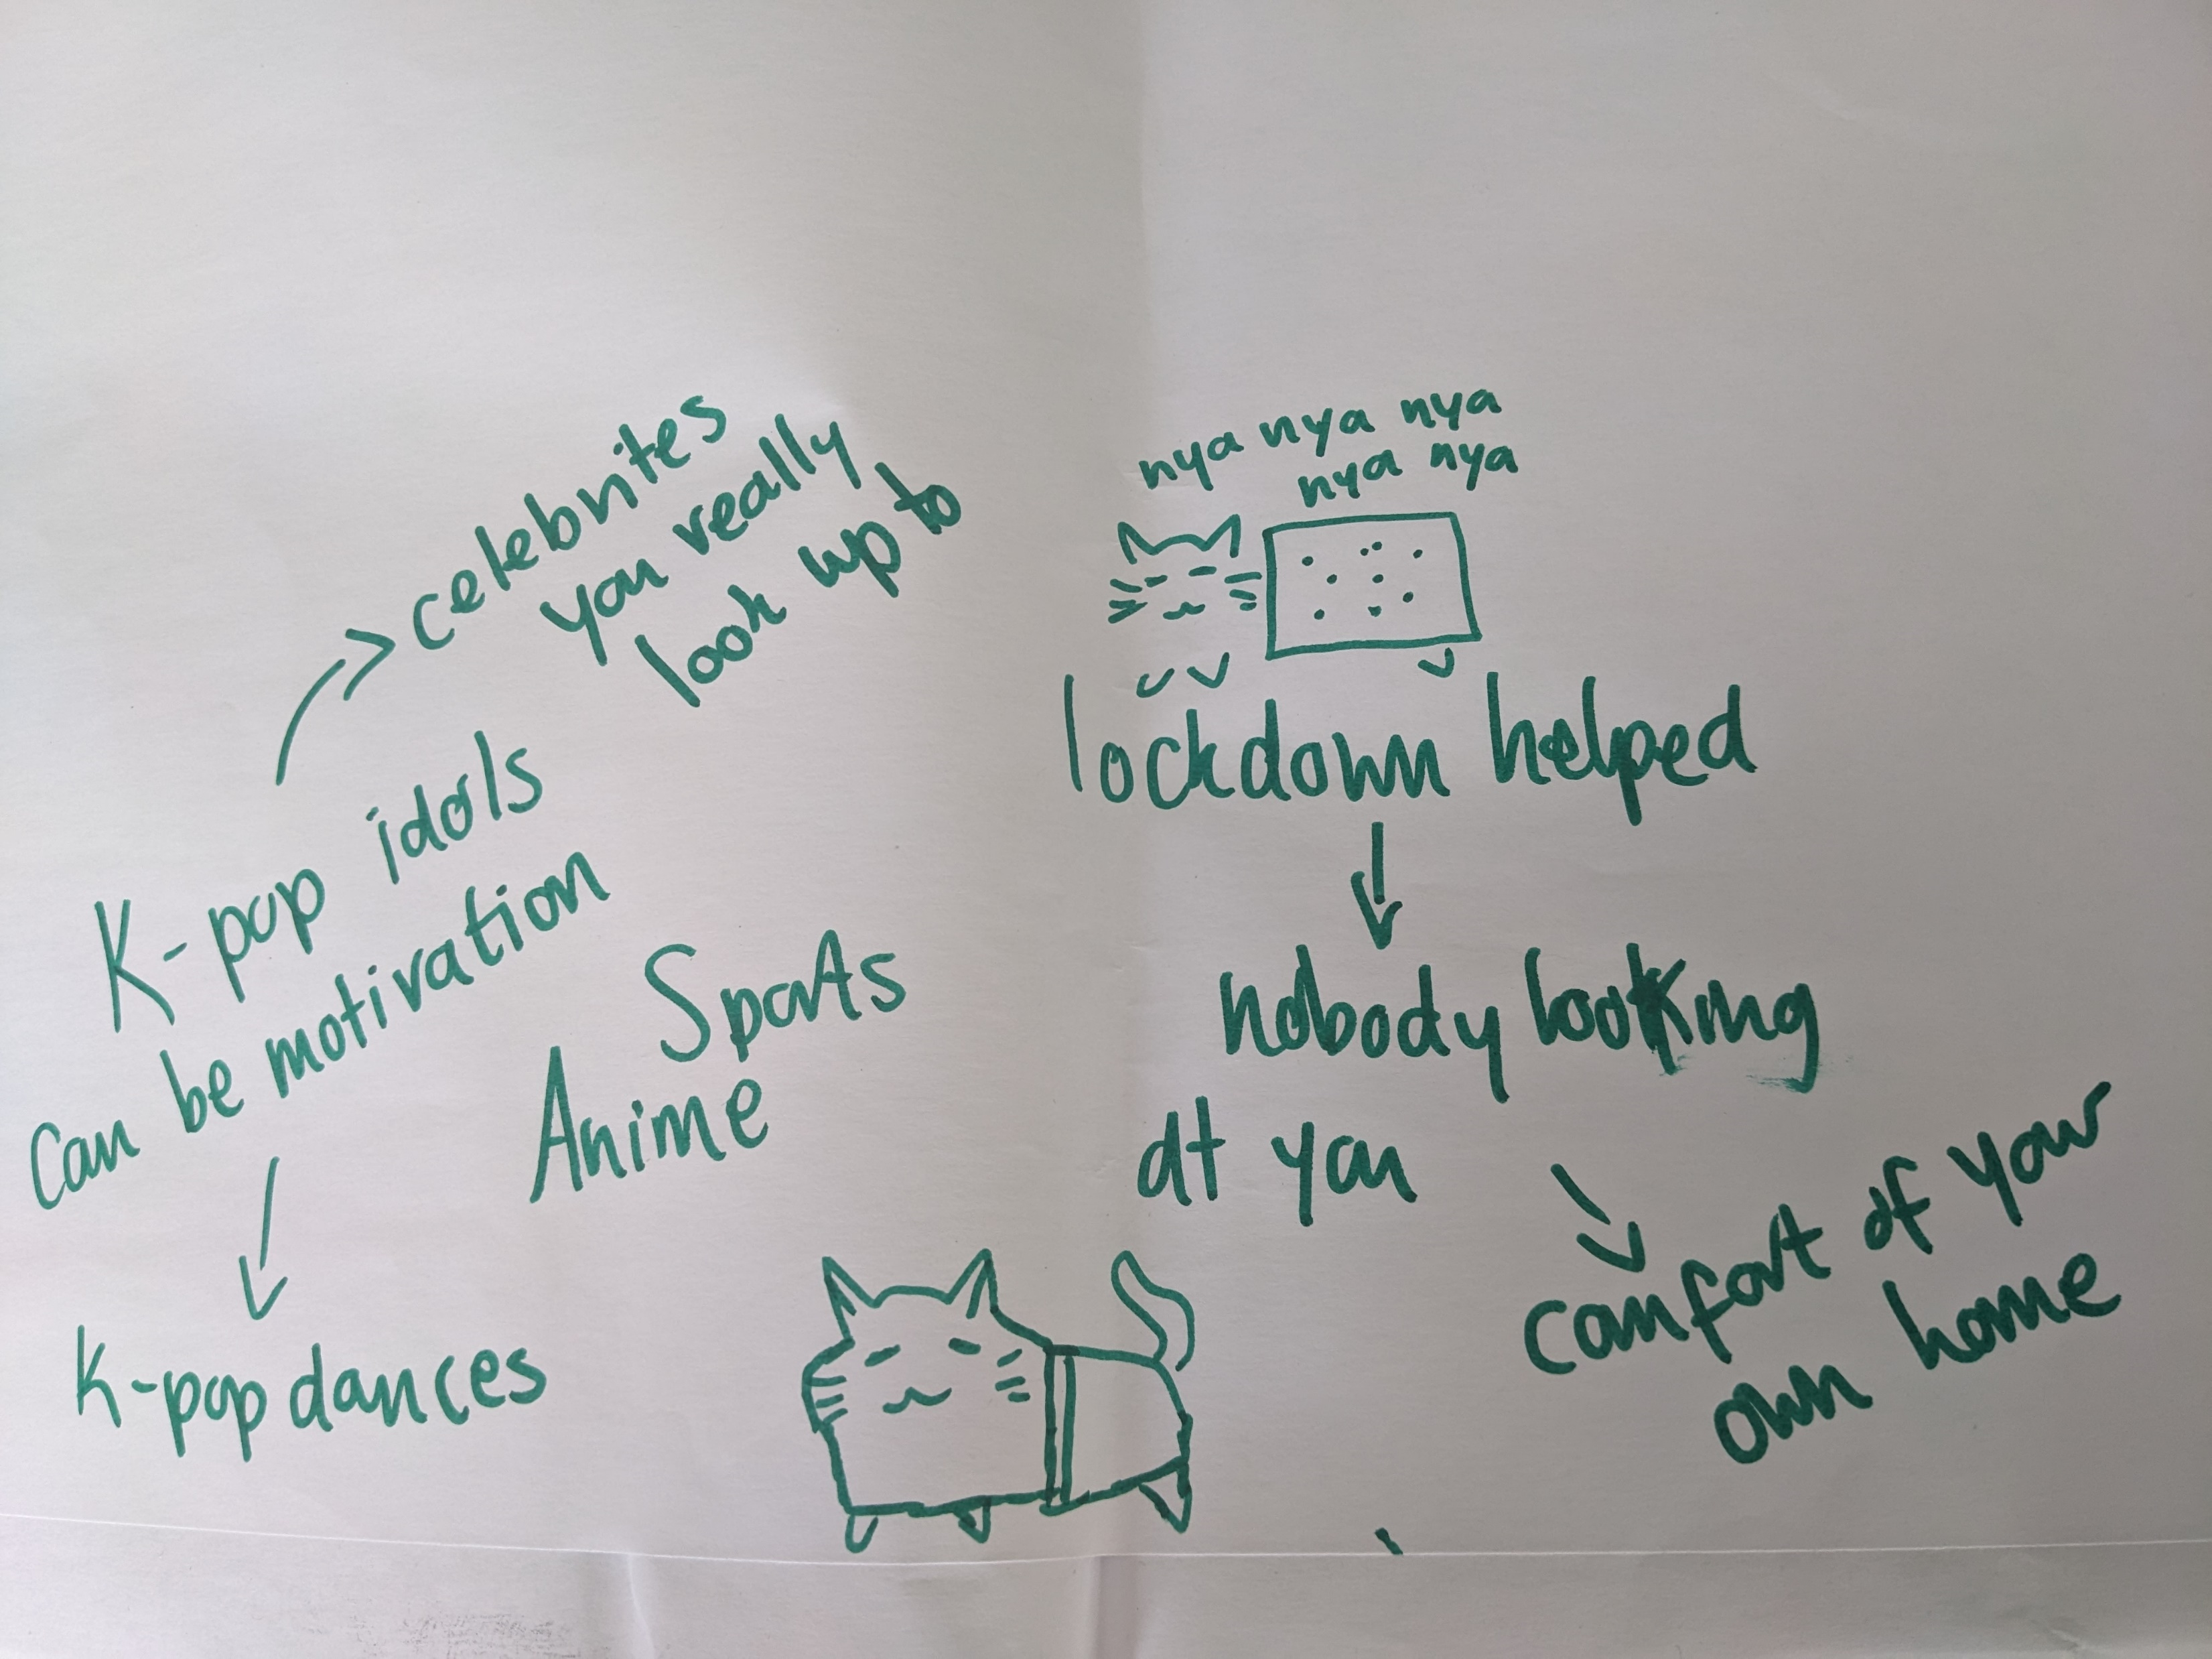 celebrites
you really
look up to
K-pop idols
can be motivation
K-pop dances
Sports
Anime
nya nya nya
nya nya
lockdown helped
nobody looking
at you
comfort of your
own home